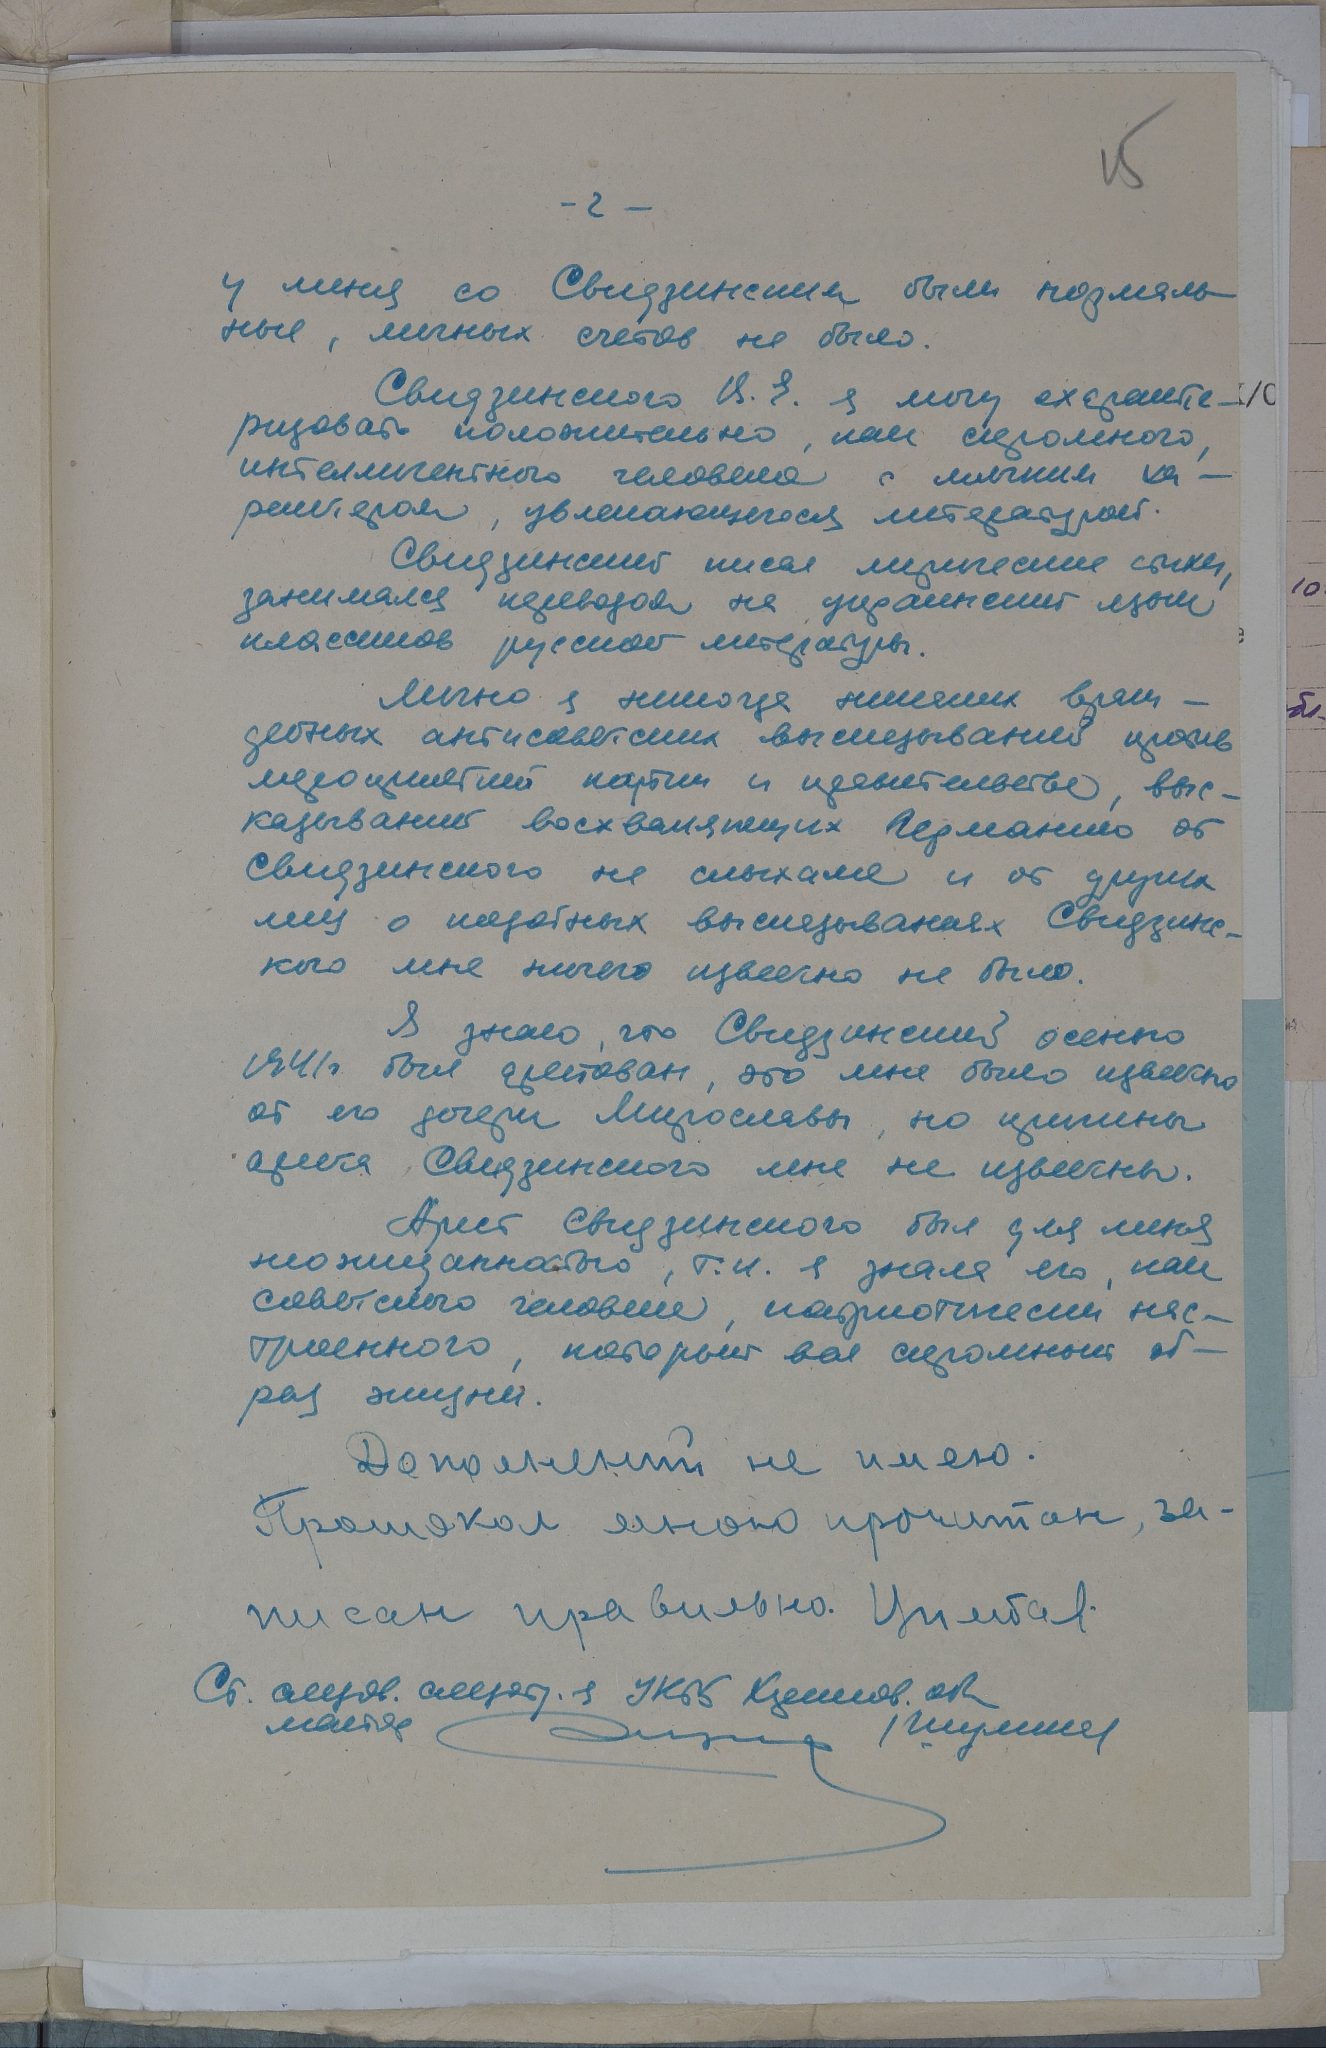 15
- 2 -
у меня со Свидзинским были нормаль-
ные, личных счетов не было.
Свидзинского В.Е. я могу охаракте-
ризовать положительно, как скромного,
интеллигентного человека с мягким ха-
рактером, увлекающегося литературой.
Свидзинский писал лирические стихи,
занимался переводом на украинский язык
классиков русской литературы.
Лично я никогда никаких враж-
дебных антисоветских высказываний против
мероприятий партии и правительства, выс-
казываний восхваляющих Германию от
Свидзинского не слыхала и от других
лиц о подобных высказываниях Свидзинс-
кого мне ничего известно не было.
Я знаю, что Свидзинский осенью
1941г. был арестован, это мне было известно
от его дочери Мирославы, но причины
ареста Свидзинского мне не известны.
Арест Свидзинского был для меня
неожиданностью, т.к. я знала его, как
советского человека, патриотически нас-
троенного, который вел скромный об-
раз жизни.
Дополнений не имею.
Протокол мною прочитан, за-
писан правильно.
Ст. следов. следотд-я УКГБ Харьков. обл
майор